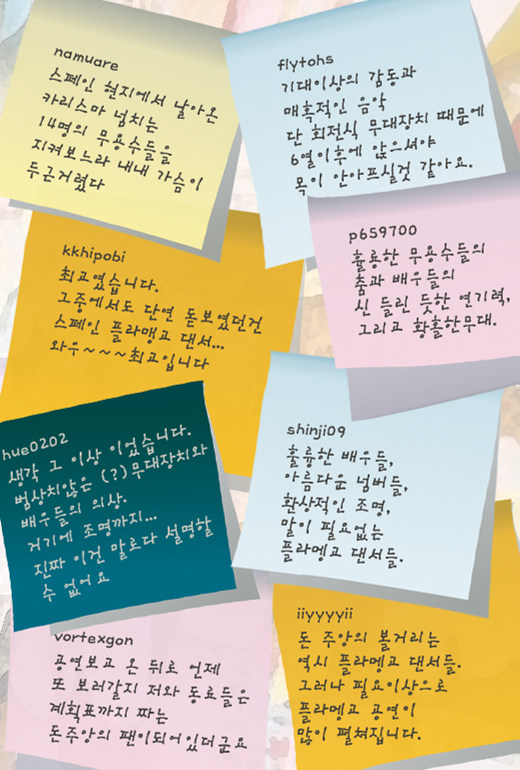 namuare
스페인 현지에서 날아온
카리스마 넘치는
14명의 무용수들을
지켜보느라 내내 가슴이
두근거렸다
flytohs
기대이상의 감동과
매혹적인 음악
단 회전식 무대장치 때문에
6열이후에 앉으셔야
목이 안아프실것 같아요.
p659700
훌룡한 무용수들의
춤과 배우들의
신 들린 듯한 연기력,
그리고 황홀한무대.
kkhipobi
최고였습니다.
그중에서도 단연 돋보였던건
스페인 플라맹고 댄서...
와우~~~최고입니다
hue0202
생각 그 이상 이었습니다.
범상치않은 (?)무대장치와
배우들의 의상.
거기에 조명까지...
진짜 이건 말로다 설명할
수 없어요
shinji09
훌륭한 배우들,
아름다운 넘버들,
환상적인 조명,
말이 필요없는
플라멩고 댄서들.
vortexgon
공연보고 온 뒤로 언제
또 보러갈지 저와 동료들은
계획표까지 짜는
돈주앙의 팬이되어있더군요
iiyyyyii
돈 주앙의 볼거리는
역시 플라멩고 댄서들.
그러나 필요이상으로
플라멩고 공연이
많이 펼쳐집니다.